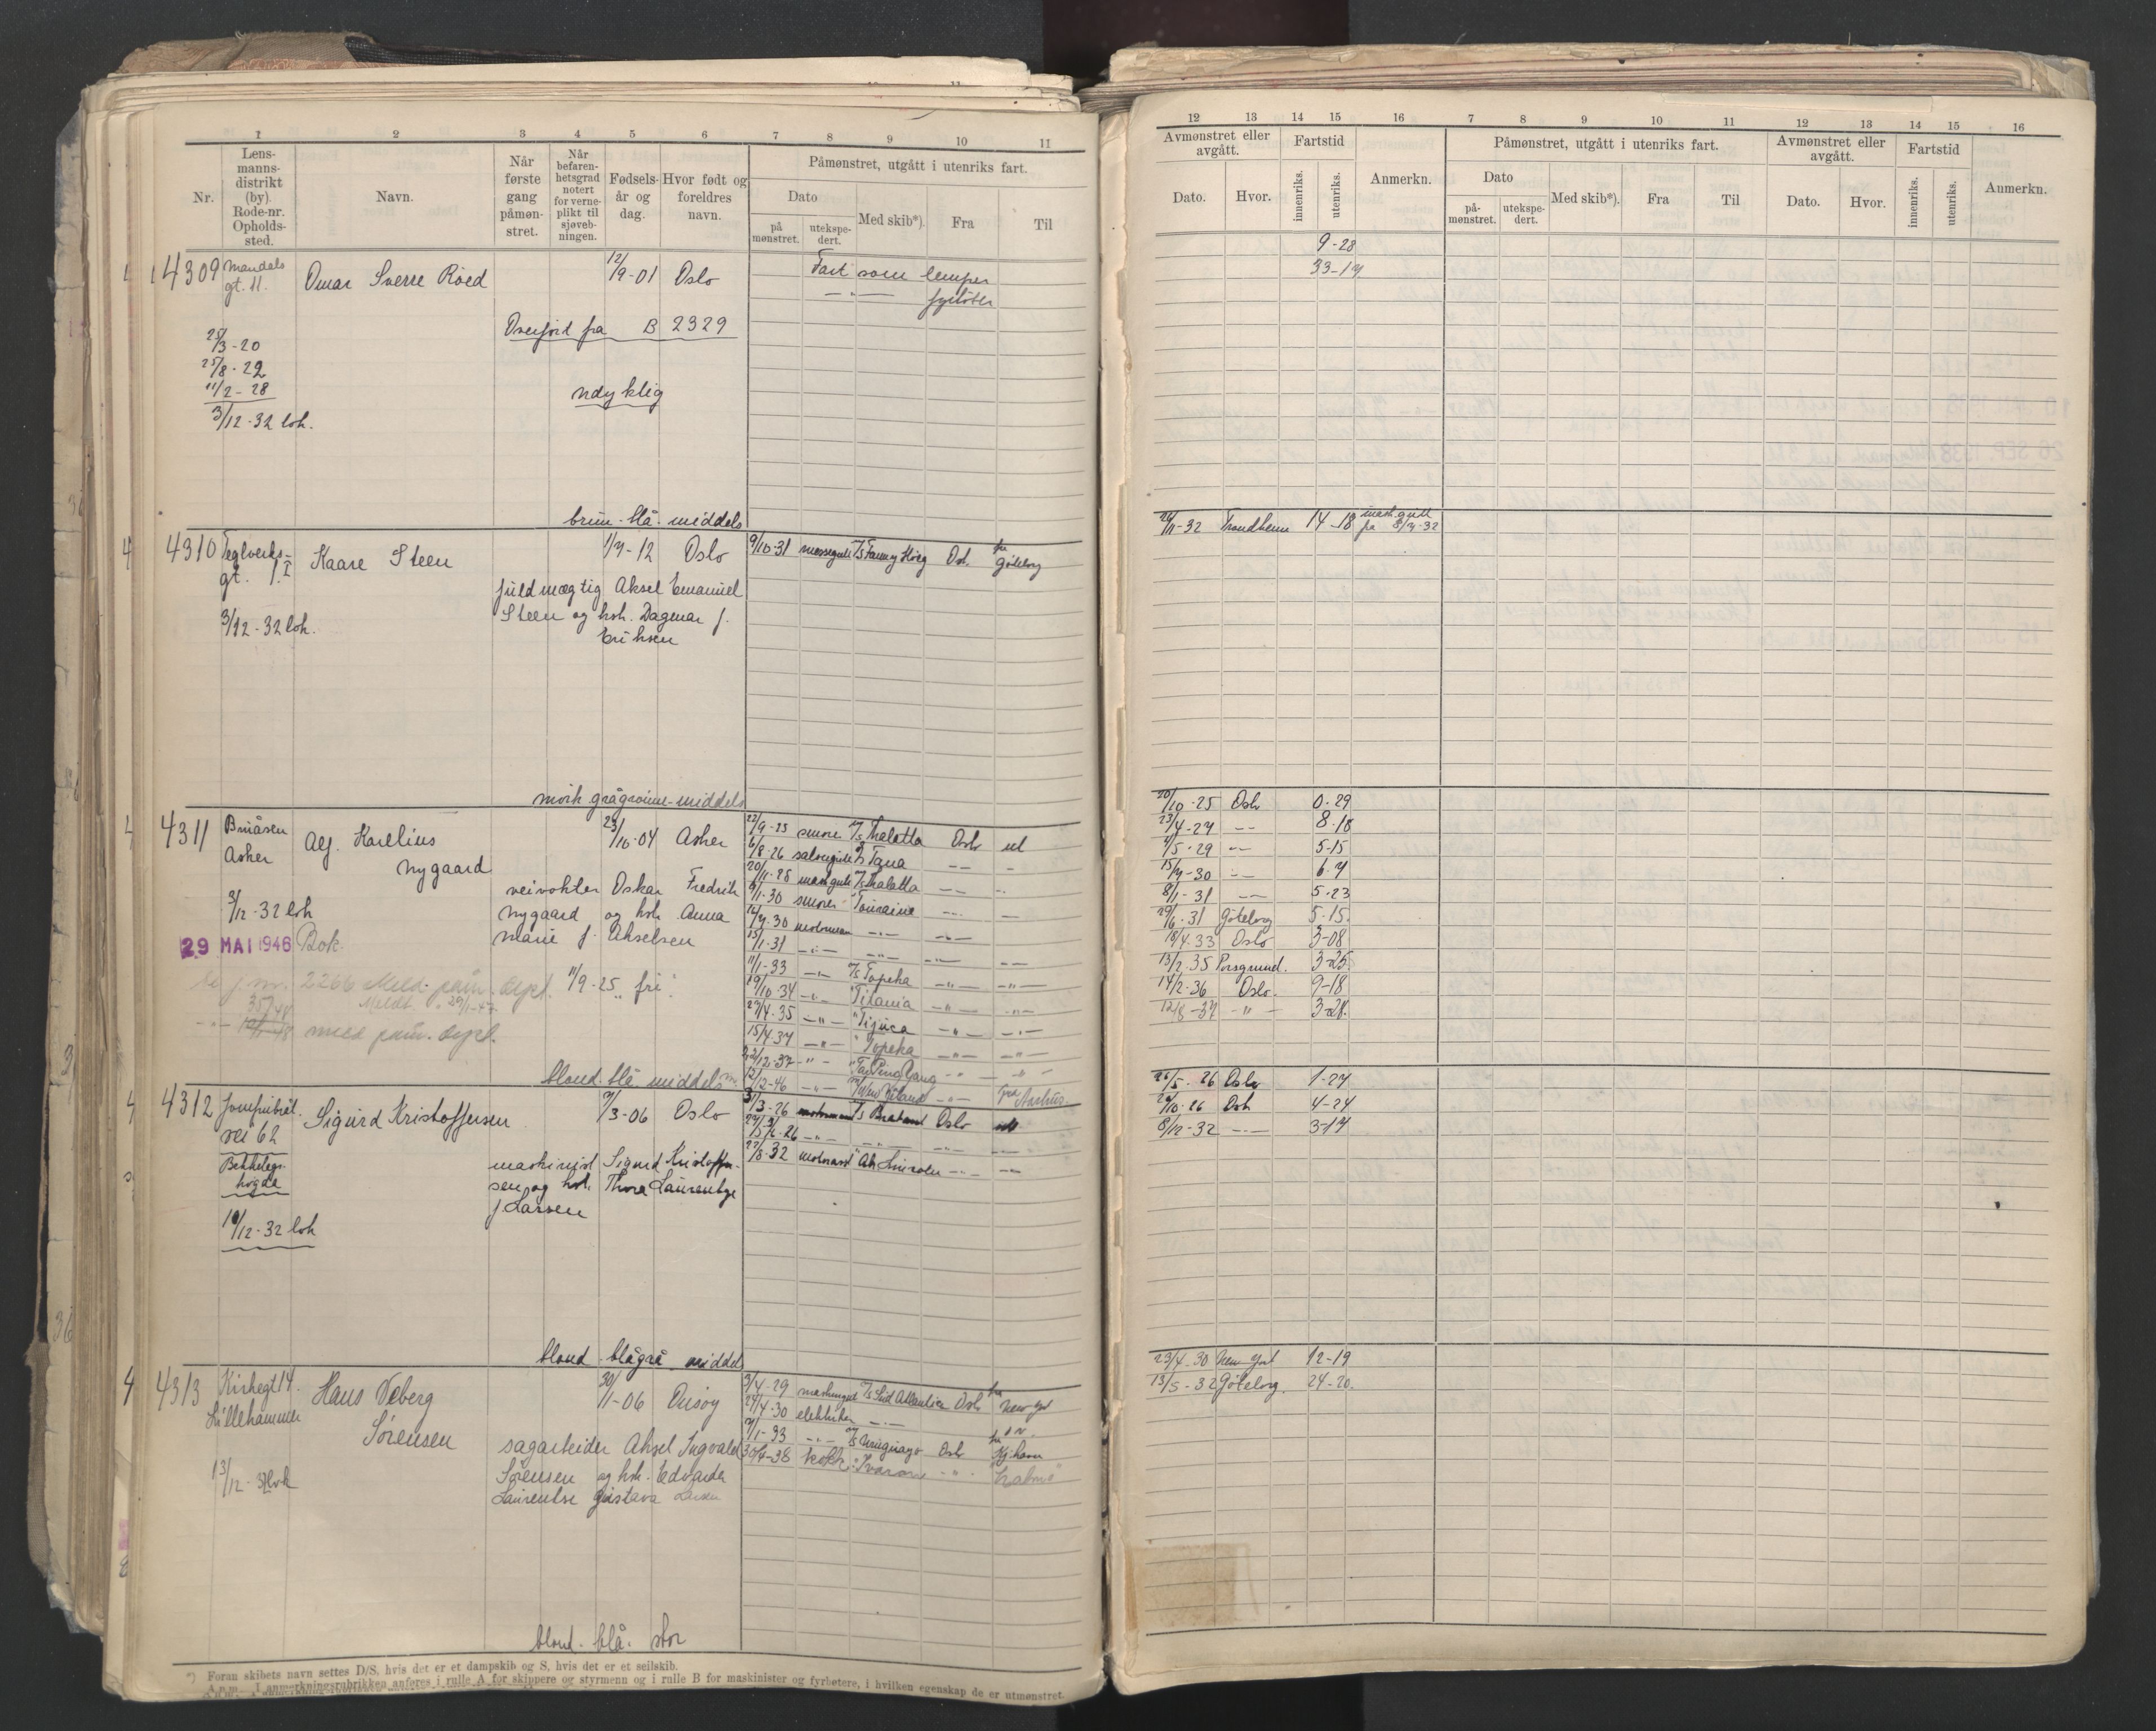 1 2 3 4 5 6 7 8 9 10 11
Nr.
Lens-
manns-
distrikt
(by).
Rode-nr.
Opholds-
sted.
Navn.
Når
første
gang
påmøn-
stret.
Når
befaren-
hetsgrad
notert
for verne-
plikt til
sjøveb-
ningen.
Fødsels-
år og
dag.
Hvor født og
foreldres
navn.
Påmønstret, utgått i utenriks fart.
Dato
på
mønstret.
utekspe-
dert.
Med skib*).
Fra
Til
4309 Mandals
gt. 11.
Omar Sverre Röed
12/9-01 Oslo
Fart som lemper
—"— fyrböter
Overförd fra B 2329
25/3-20
25/8-22
11/2-28
3/12-32 loh.
udyktig
brun-blå-middels
4310 Teglverks-
gt. 1. I
Kaare Steen
1/7-12 Oslo
9/10-31 messegutt Fanny Höeg Osl. for Göteborg
fuldmægtig Aksel Emanuel
Steen og hst. Dagmar f.
Eriksen
3/12-32 loh.
mörk gråbrune-middels
4311 Asker
Alf Karelius
Nygaard
23/10-04 Asker
veivokter Oskar Fredrik
Nygaard og hst. Anna
Marie f. Akselsen
3/12-32 loh
29 MAI 1946 Bok.
11/9-25 fri
22/9-25 smörer Thalatta Oslo ut
6/8-26 salongutt Tana
20/11-28 maskgutt Thalatta
8/1-30 smörer Touraine
16/7-30 motormann
15/1-31
11/1-33 Topeka
19/10-34 Titania
27/4-35 Tijuca
15/4-37 Topeka
22/12-37 Tai Ping Yang
2/12-46 Aarhus
J. nr. 2266 Meld. påm. depl.
Meldt. 29/1-47
med påm. depl.
blond-blå middels
4312
vei 62
Bekkelags-
högda
Sigurd Kristoffersen
7/3-06 Oslo
maskinist Sigurd Kristoffer-
sen og hst. Thora Laurentze
f. Larsen
10/12-32 loh
31/3-26 motormann Brabant Oslo ut
27/8-32 motorass Ab. Lincoln
blond-blågrå middels
4313 Kirkegt 14
Lillehammer
Hans Veberg
Sörensen
30/11-06 Onsöy
sagarbeider Aksel Ingvald
Sörensen og hst. Edvarda
Laurentse Gustava Larsen
13/12-32 loh
3/4-29 maskingutt Sud Atlantic Oslo for New York
24/4-30 elektriker
7/1-33 Uruguayo Oslo for Kj.havn
30/4-38 kokk Ivaran
blond. blå. stor
*) Foran skibets navn settes D/S, hvis det er et dampskib og S, hvis det er et seilskib.
Anm. I anmerkningsrubrikken anføres i rulle A for skippere og styrmenn og i rulle B for maskinister og fyrbøtere, i hvilken egenskap de er utmønstret.
12 13 14 15 16 7 8 9 10 11 12 13 14 15 16
Avmønstret eller
avgått.
Dato. Hvor.
Fartstid
innenriks. utenriks.
Anmerkn.
Påmønstret, utgått i utenriks fart.
Dato
på-
mønstret.
utekspe-
dert.
Med skib*). Fra Til
Avmønstret eller
avgått.
Dato. Hvor.
Fartstid
innenriks. utenriks.
Anmerkn.
9-28
33-17
24/11-32 Trondheim 14-18 mask.gutt
fra 8/7-32
20/10-25 Oslo 0-29
23/4-27 —"— 8-18
4/5-29 —"— 5-15
15/7-30 —"— 6-7
8/1-31 —"— 5-23
29/6-31 Göteborg 5-15.
18/4-33 Oslo 3-08
13/2-35 Porsgrund. 3-25.
14/2-36 Oslo. 9-18
12/8-37 —"— 3-28.
26/5-26 Oslo 1-27
20/10-26 Osl. 4-24
8/12-32 —"— 3-17
23/4-30 New York 12-19
13/5-32 Göteborg. 24-20.